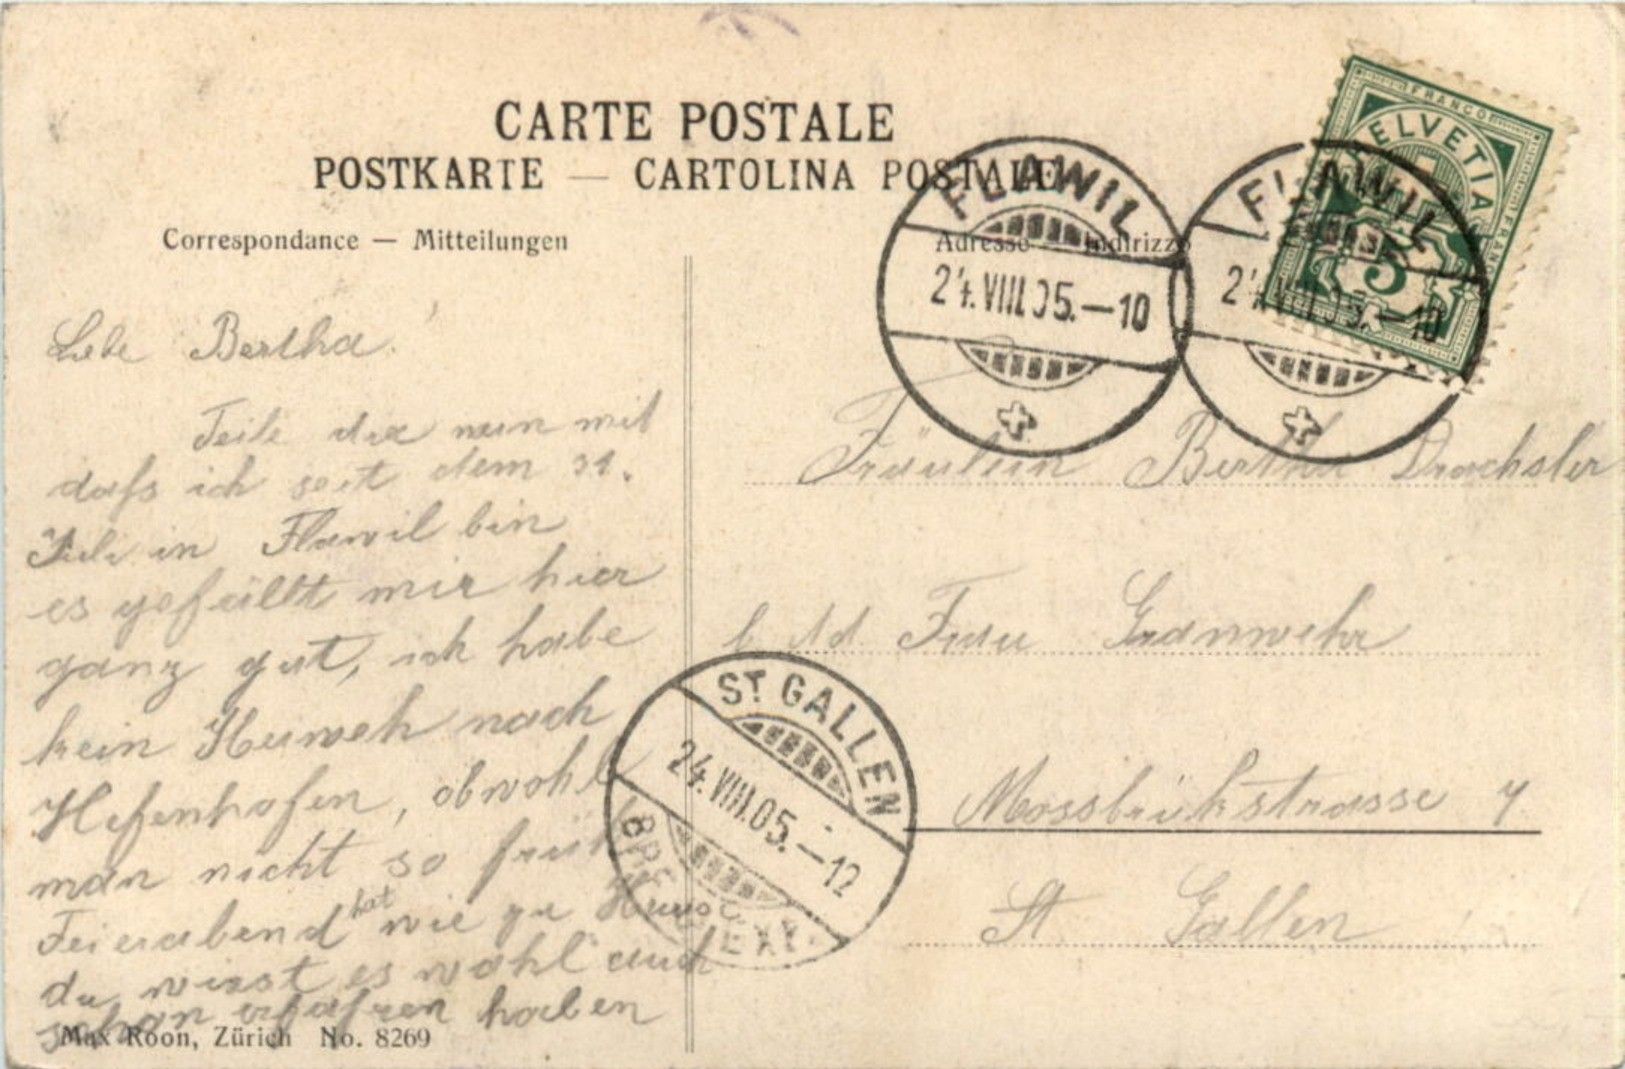 CARTE POSTALE
POSTKARTE — CARTOLINA POSTALE
Correspondance — Mitteilungen
Adresse — Indirizzo
FRANCO
HELVETIA
FRANCO
5
FLAWIL
24.VIII.05.—10
FLAWIL
24.VIII.05.—10
Liebe Bertha.
Teile dir nun mit
dafs ich seit dem 31.
Juli in Flawil bin
es gefällt mir hier
ganz gut, ich habe
kein Heimweh nach
Hefenhofen, obwohl
man nicht so früh
Feierabend hat wie zu Haus
du wirst es wohl auch
schon erfahren haben
Fräulein Bertha Drachsler
b. Ad. Frau
Moosbrükstrasse 7
St. Gallen
ST. GALLEN
24.VIII.05.—12
BRF. EXP.
Max Roon, Zürich No. 8269